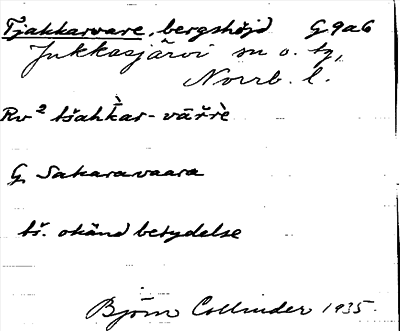 Tjakkarvare, bergshöjd G 9a6
Jukkasjärvi sn o. tg,
Norrb. l.
Rv² tšahk̀ar-vāřrè
G. Sakaravaara
tš. okänd betydelse
Björn Collinder 1935.